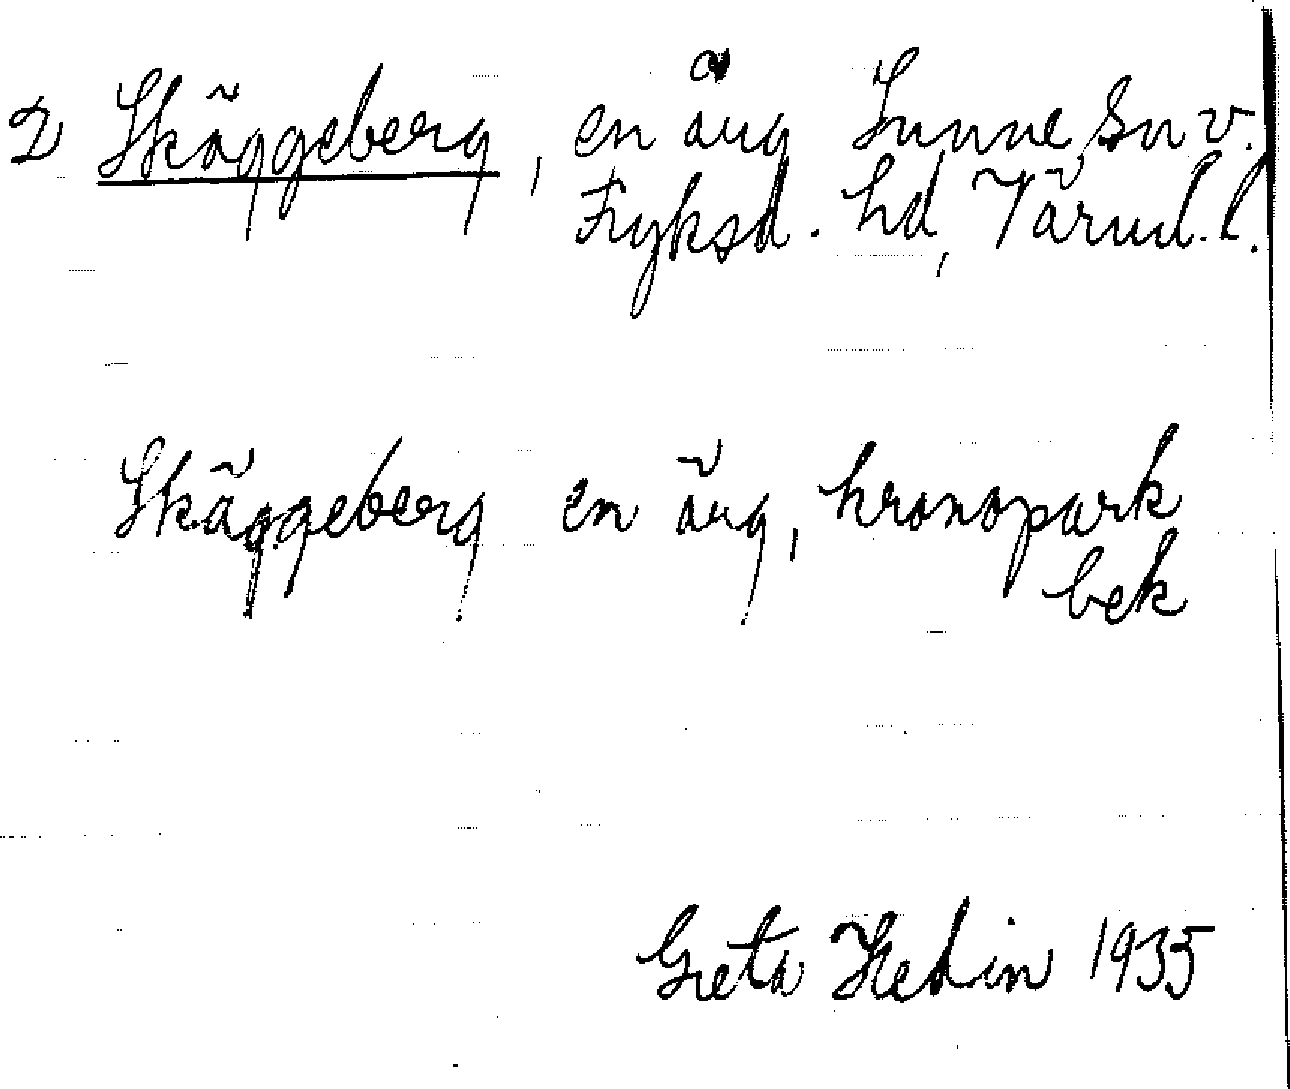 2 Skäggeberg, en äng Sunne, sn v.
Fryksd. hd, Värml. l.
Skäggeberg en äng, kronopark
bek
Greta Hedin 1935